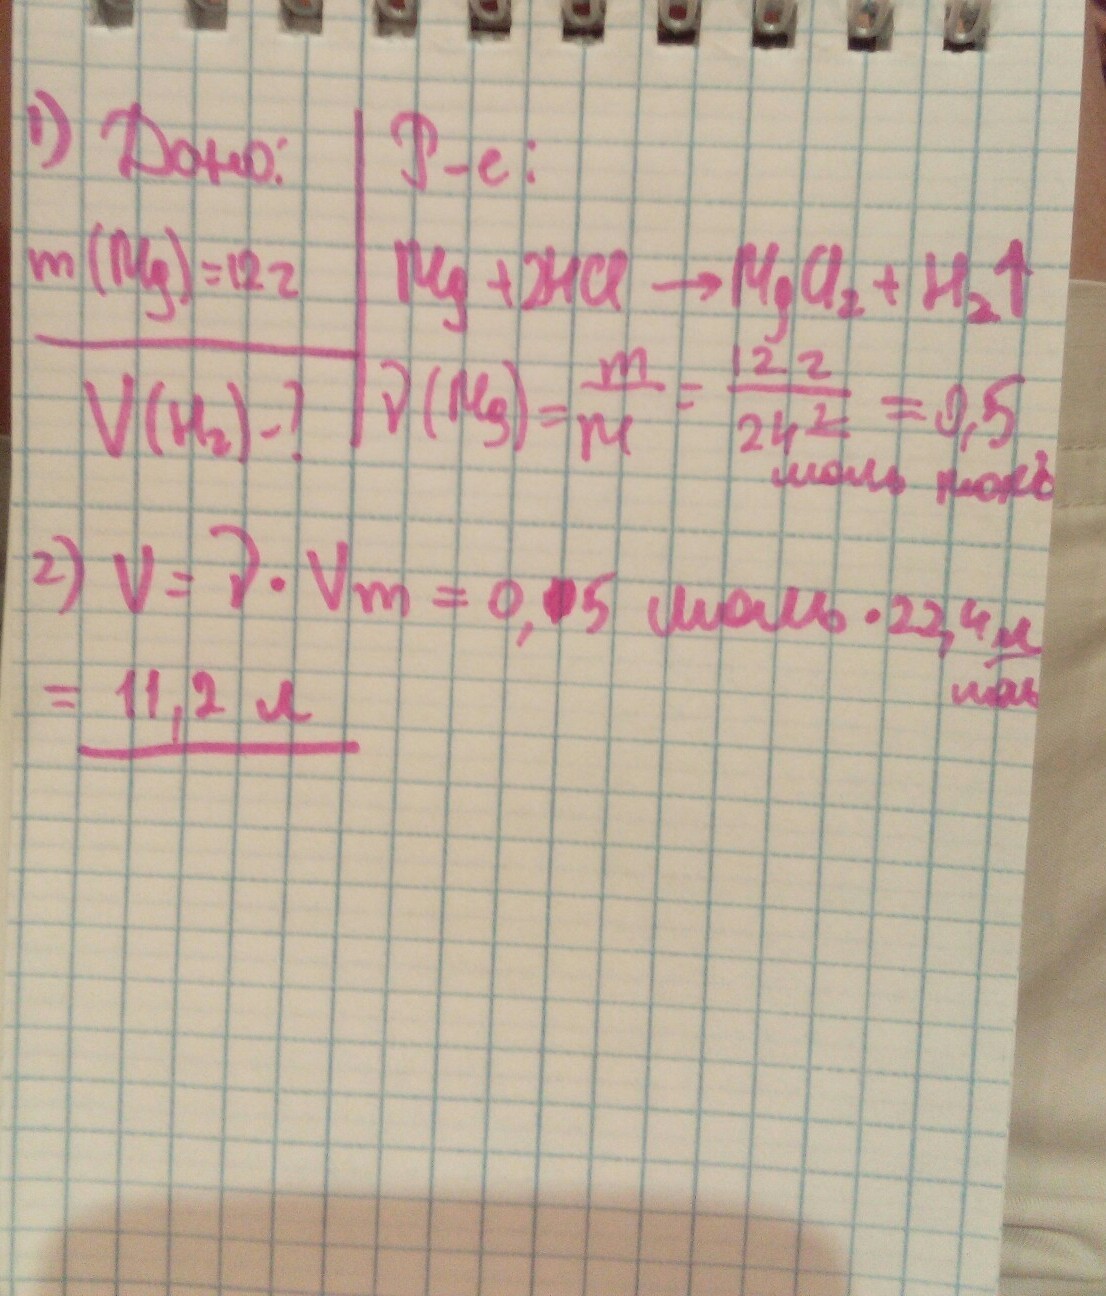 1) Дано:
Р-е:
m(Mg)=12г
Mg+2HCl → MgCl₂+H₂↑
V(H₂)-?
ν(Mg)= m/M = 12 г/24 г/моль = 0,5 моль
2) V= ν · Vm = 0,5 моль · 22,4 л/моль
= 11,2 л